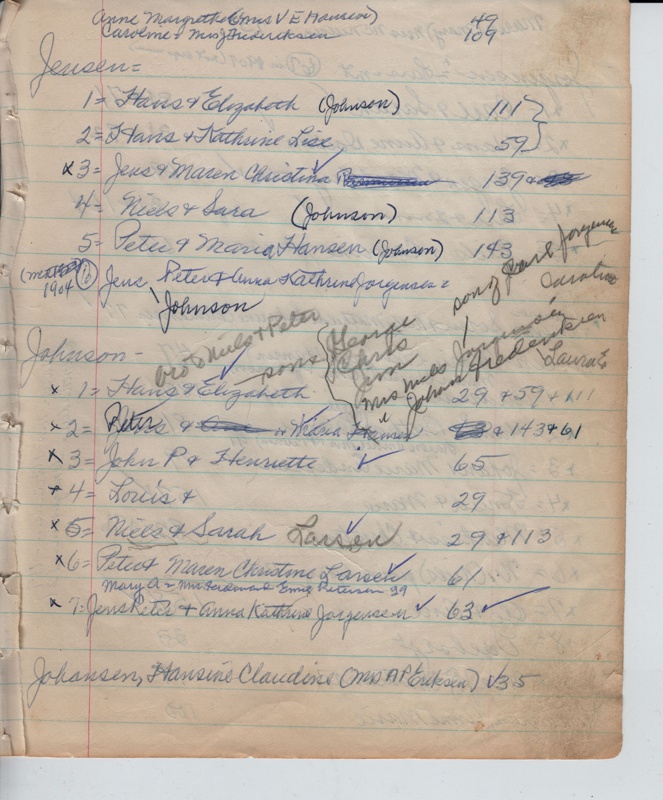 Anne Margrethe (Mrs V E Hansen) 49
Caroline = Mrs J Frederiksen 109
Jensen =
1 = Hans & Elizabeth (Johnson) 111
2 = Hans & Kathrine Lise 59
x 3 = Jens & Maren Christina 139 &
4 = Niels & Sara (Johnson) 113
5 = Peter & Maria Hansen (Johnson) 143
1904 6 Jens Peter & Anna Kathrine Jorgensen =
Johnson
bro to Niels & Peter
sons George
Chris
Jim
son of Jorgensen
Caroline
Mrs Niels Jorgensen
Johan Frederiksen
Laura
Johnson -
x 1 = Hans & Elizabeth 29 + 59 + 111
x 2 = Peter & Maria Hansen & 143 + 61
x 3 = John P & Henriette 65
x 4 = Louis & 29
x 5 = Niels & Sarah Larsen 29 + 113
x 6 = Peter & Maren Christine Larsen 61
Mary A = Mrs Ferdinand Emig Petersen 39
x 7 = Jens Peter & Anna Kathrine Jorgensen 63
Johansen, Hansine Claudine (Mrs A P Eriksen) 35